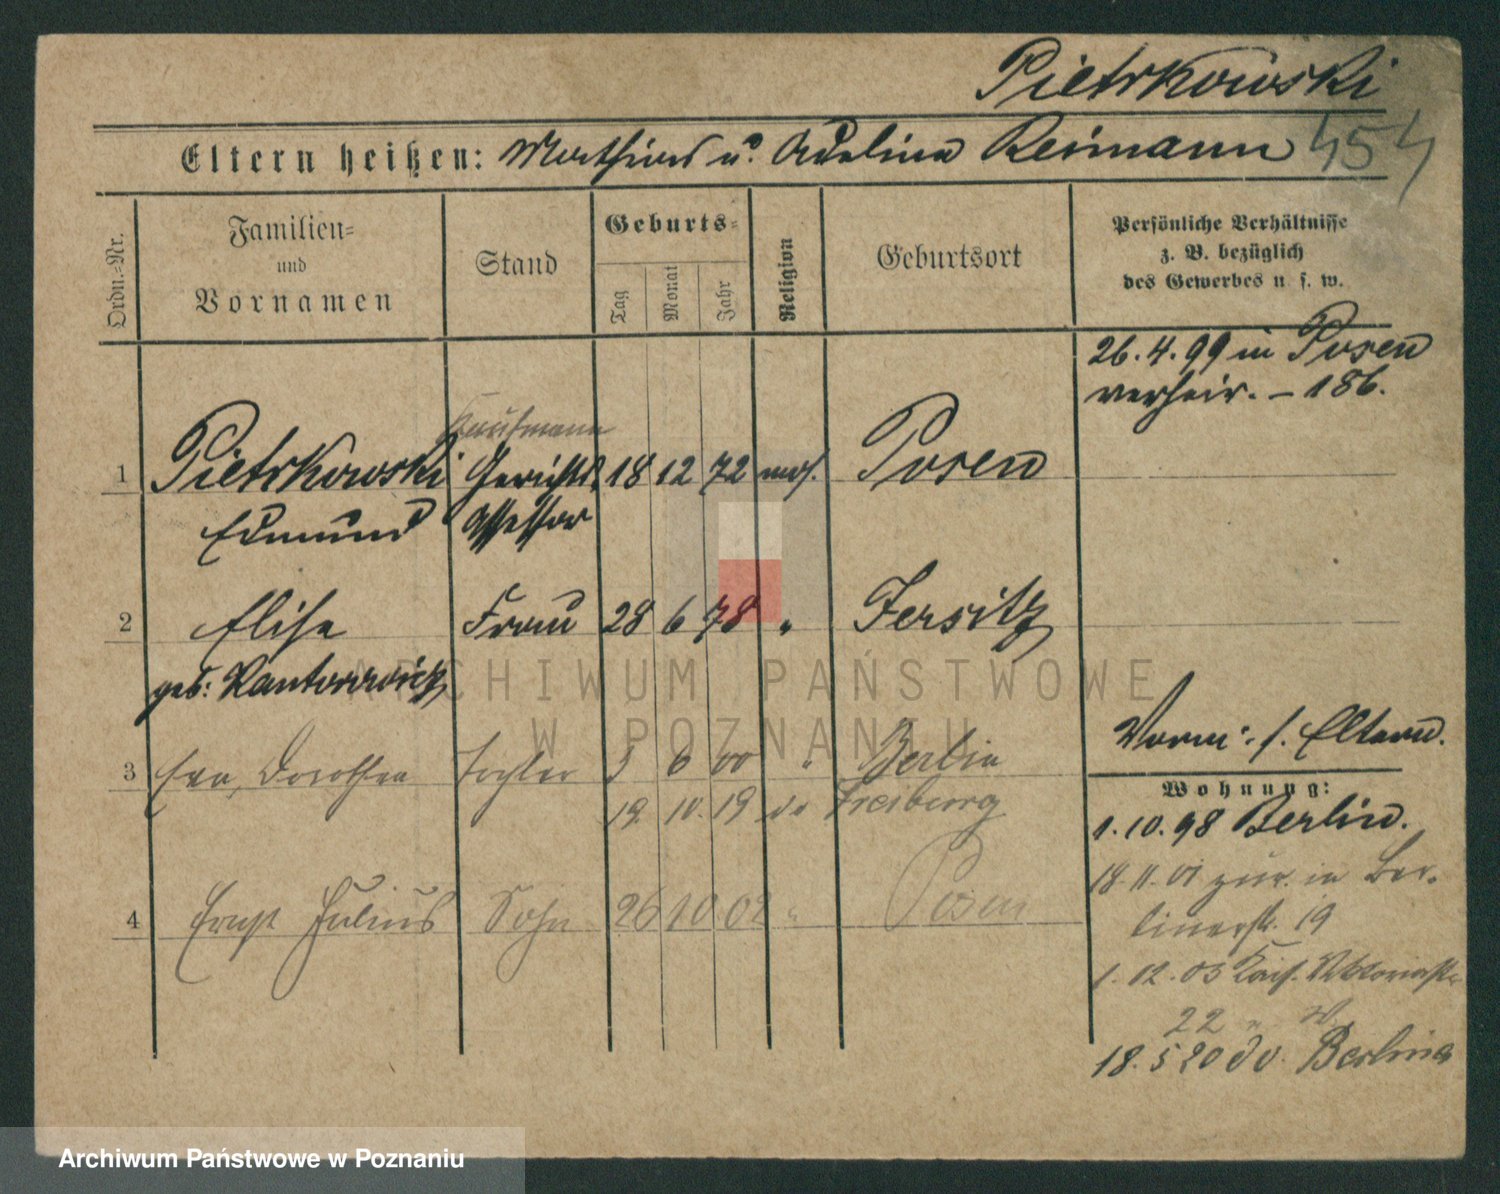 Pietrkowski
Eltern heißen: Mathias u. Adelina Reimann 454
Ordn.=Nr.
Familien=
und
Vornamen
Stand
Geburts=
Tag
Monat
Jahr
Religion
Geburtsort
Persönliche Verhältnisse
z. B. bezüglich
des Gewerbes u. s. w.
26.4.99 in Posen
verheir. - 186.
Kaufmann
1 Pietrkowski Gerichts 18 12 72 mos. Posen
Edmund Assessor
2 Elise Frau 28 6 78 " Jersitz
geb: Kantorowicz
Vorm: s. Eltern.
3 Eva, Dorothea Tochter 5 6 00 " Berlin
19. 10. 19 do Freiburg
Wohnung:
1.10.98 Berlin.
18.11.01 zur. in Ber-
linerstr. 19
4 Ernst Julius Sohn 26 10 02 " Posen
1.12.03 Kais. Viktoriastr
22 "
18.5 20 do. Berlin
ARCHIWUM PAŃSTWOWE
W POZNANIU
Archiwum Państwowe w Poznaniu